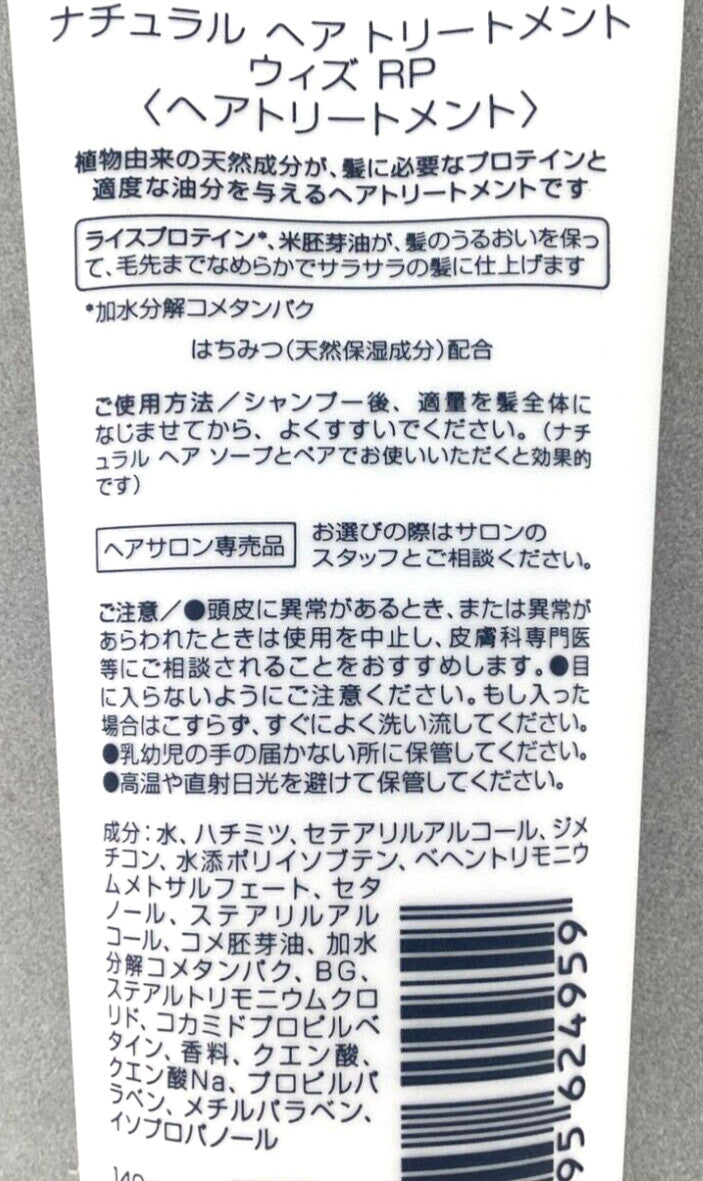 ナチュラル ヘア トリートメント
ウィズ RP
〈ヘアトリートメント〉
植物由来の天然成分が、髪に必要なプロテインと
適度な油分を与えるヘアトリートメントです
ライスプロテイン*、米胚芽油が、髪のうるおいを保っ
て、毛先までなめらかでサラサラの髪に仕上げます
*加水分解コメタンパク
はちみつ(天然保湿成分)配合
ご使用方法/シャンプー後、適量を髪全体に
なじませてから、よくすすいでください。(ナチ
ュラル ヘア ソープとペアでお使いいただくと効果的
です)
ヘアサロン専売品
お選びの際はサロンの
スタッフとご相談ください。
ご注意/●頭皮に異常があるとき、または異常が
あらわれたときは使用を中止し、皮膚科専門医
等にご相談されることをおすすめします。●目
に入らないようにご注意ください。もし入った
場合はこすらず、すぐによく洗い流してください。
●乳幼児の手の届かない所に保管してください。
●高温や直射日光を避けて保管してください。
成分:水、ハチミツ、セテアリルアルコール、ジメ
チコン、水添ポリイソブテン、ベヘントリモニウ
ムメトサルフェート、セタ
ノール、ステアリルアル
コール、コメ胚芽油、加水
分解コメタンパク、BG、
ステアルトリモニウムクロ
リド、コカミドプロピルベ
タイン、香料、クエン酸、
クエン酸Na、プロピルパ
ラベン、メチルパラベン、
イソプロパノール
95 624959